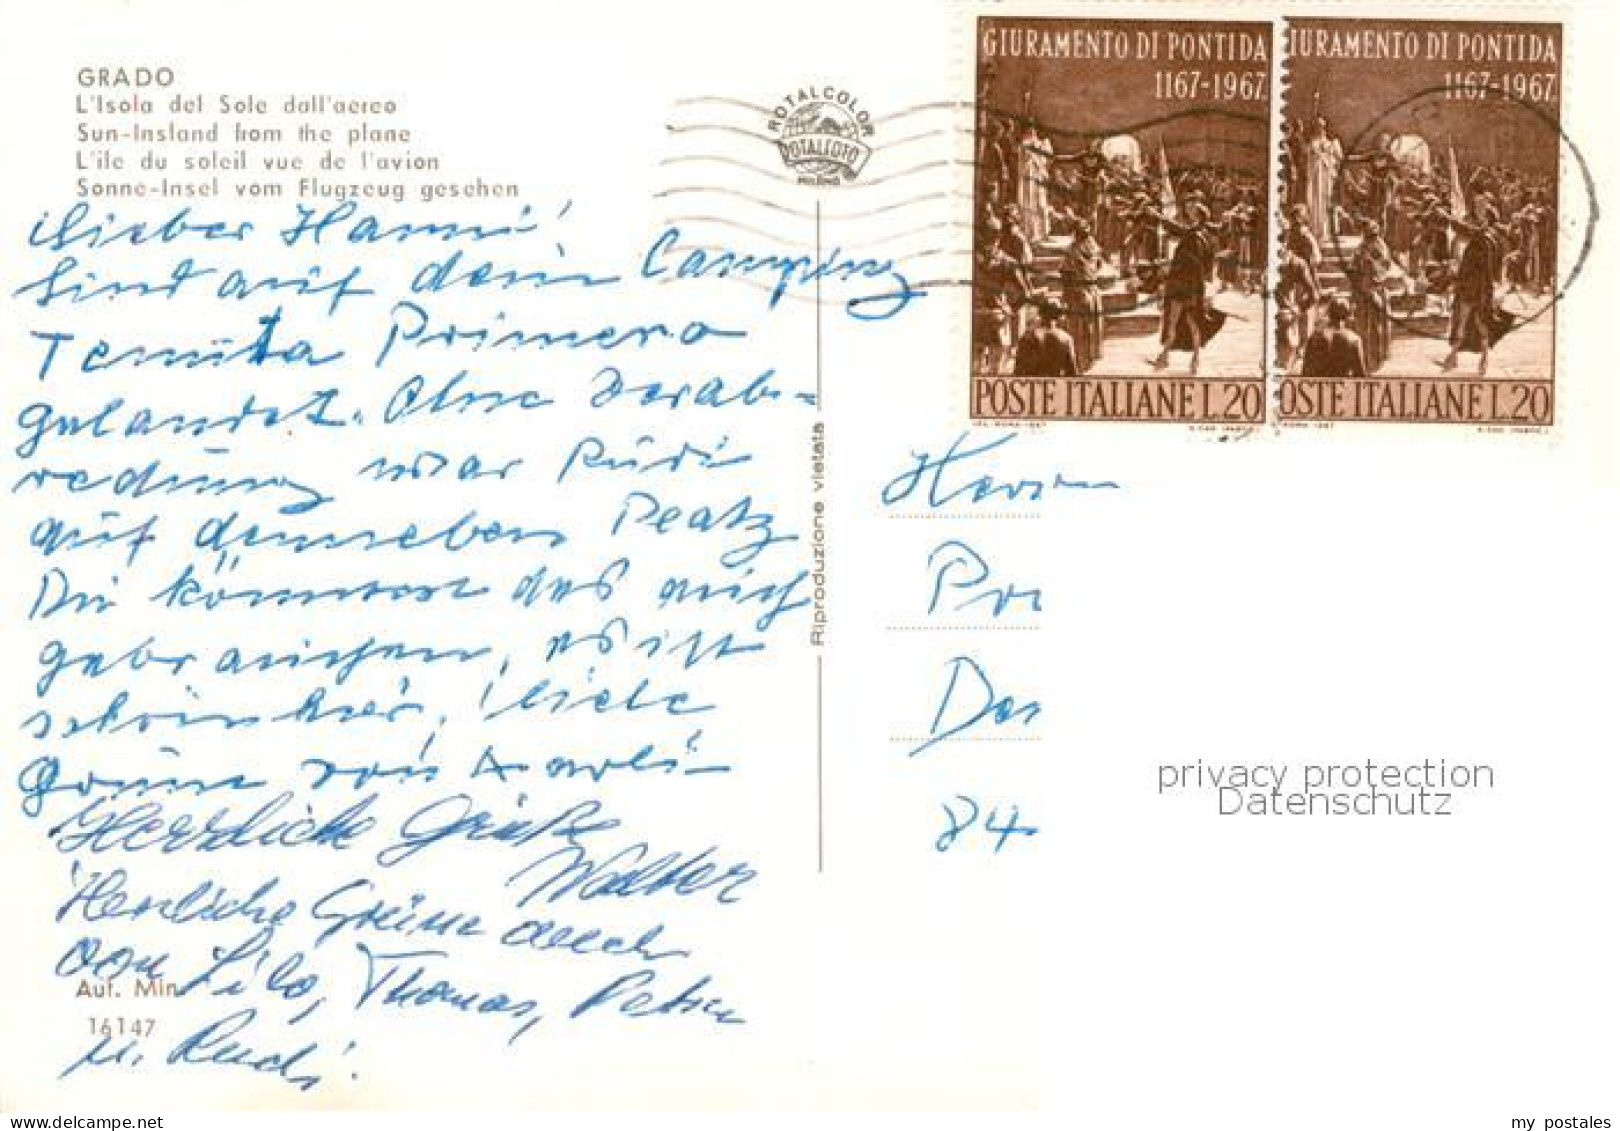 GRADO
L'Isola del Sole dall'aereo
Sun-Insland from the plane
L'ile du soleil vue de l'avion
Sonne-Insel vom Flugzeug gesehen
Lieber Hanni!
Sind auf dem Camping
Tenuta Primero
gelandet. Ohne Verab=
redung war Rudi
auf demselben Platz
Du könntest das auch
gebrauchen, es ist
schön hier, liebe
Grüsse von Karli
Herzliche Grüße
Walter
Herzliche Grüsse auch
von Lilo, Thomas, Petra
u. Rudi.
Aut. Min.
16147
ROTALCOLOR
ROTALFOTO
MILANO
Riproduzione vietata
GIURAMENTO DI PONTIDA
1167-1967
POSTE ITALIANE L.20
IURAMENTO DI PONTIDA
1167-1967
OSTE ITALIANE L.20
Herrn
84
privacy protection
Datenschutz
my postales